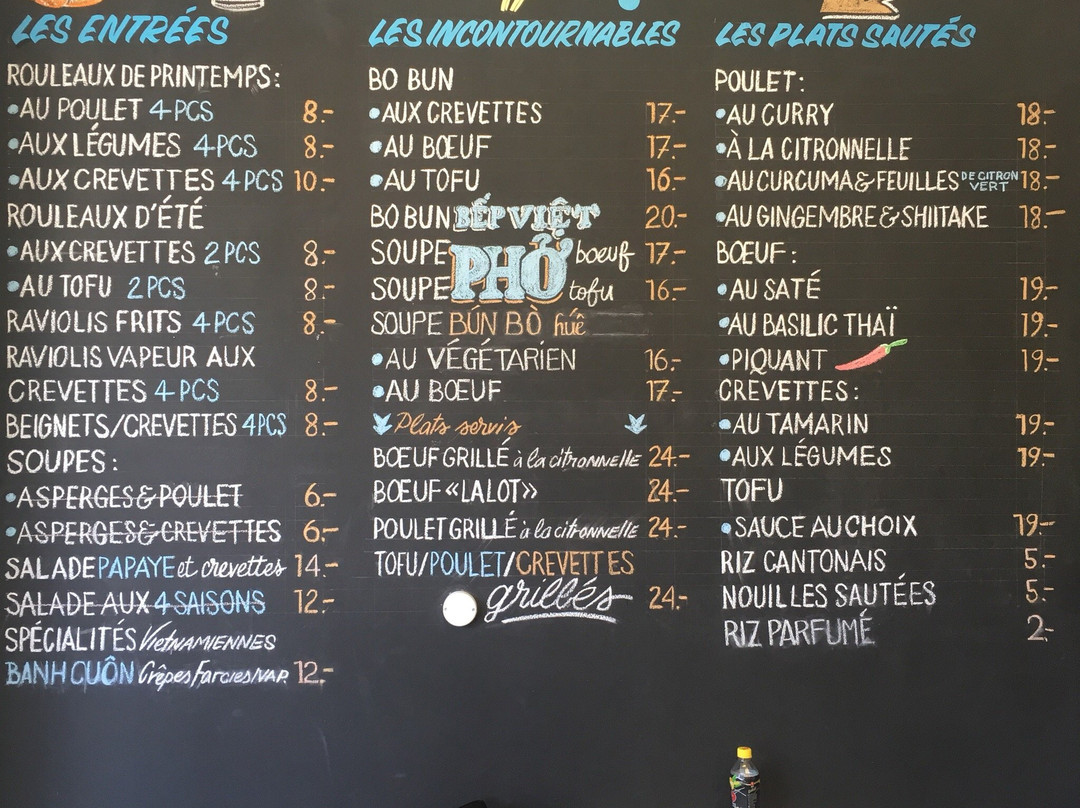 LES ENTRÉES
ROULEAUX DE PRINTEMPS:
•AU POULET 4 PCS 8.-
•AUX LÉGUMES 4 PCS 8.-
•AUX CREVETTES 4 PCS 10.-
ROULEAUX D'ÉTÉ
•AUX CREVETTES 2 PCS 8.-
•AU TOFU 2 PCS 8.-
RAVIOLIS FRITS 4 PCS 8.-
RAVIOLIS VAPEUR AUX
CREVETTES 4 PCS 8.-
BEIGNETS/CREVETTES 4 PCS 8.-
SOUPES:
•ASPERGES & POULET 6.-
•ASPERGES & CREVETTES 6.-
SALADE PAPAYE et crevettes 14.-
SALADE AUX 4 SAISONS 12.-
SPÉCIALITÉS VIETNAMIENNES
BANH CUÔN Crêpes Farcies VAP. 12.-
LES INCONTOURNABLES
BO BUN
•AUX CREVETTES 17.-
•AU BŒUF 17.-
•AU TOFU 16.-
BO BUN BẾP VIỆT 20.-
SOUPE PHỞ boeuf 17.-
SOUPE tofu 16.-
SOUPE BÚN BÒ húê
•AU VÉGÉTARIEN 16.-
•AU BŒUF 17.-
Plats servis
BŒUF GRILLÉ à la citronnelle 24.-
BŒUF «LALOT» 24.-
POULET GRILLÉ à la citronnelle 24.-
TOFU/POULET/CREVETTES
grillés 24.-
LES PLATS SAUTÉS
POULET:
•AU CURRY 18.-
•À LA CITRONNELLE 18.-
•AU CURCUMA & FEUILLES DE CITRON VERT 18.-
•AU GINGEMBRE & SHIITAKE 18.-
BŒUF:
•AU SATÉ 19.-
•AU BASILIC THAÏ 19.-
•PIQUANT 19.-
CREVETTES:
•AU TAMARIN 19.-
•AUX LÉGUMES 19.-
TOFU
•SAUCE AU CHOIX 19.-
RIZ CANTONAIS 5.-
NOUILLES SAUTÉES 5.-
RIZ PARFUMÉ 2.-